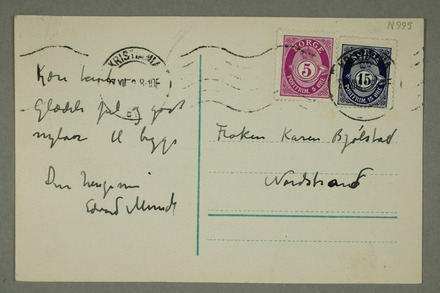 N 995
KRISTIANIA
NORGE
5
POSTFRIM. 5 ØRE
NORGE
15
POSTFRIM. 15 ØRE
Kære tante
Glædelig jul og godt
nytaar
Din hengivne
Edvard Munch
Frøken Karen Bjølstad
Nordstrand